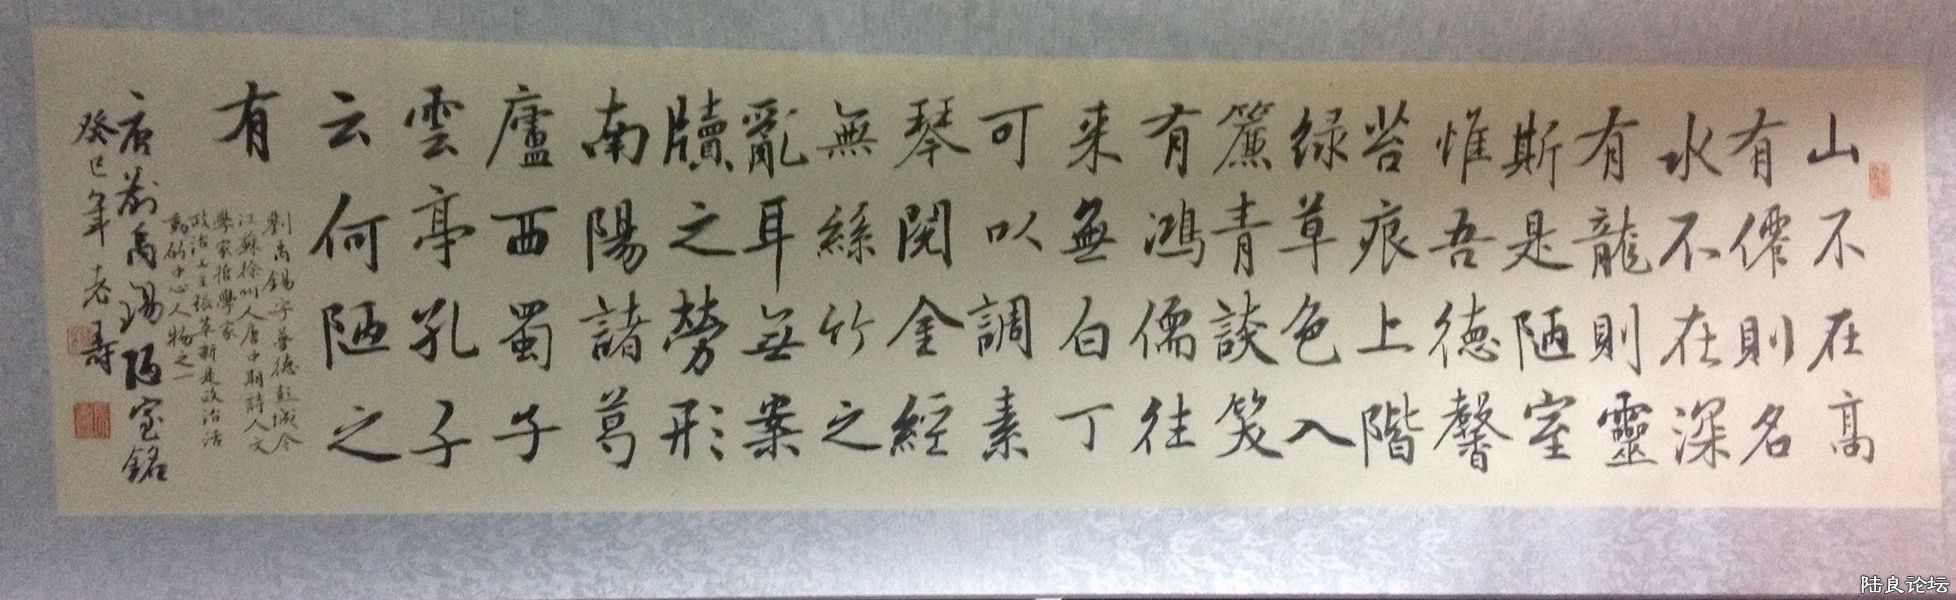 山不在高
有僊則名
水不在深
有龍則靈
斯是陋室
惟吾德馨
苔痕上階
緑草色入
簾青談笑
有鴻儒往
来無白丁
可以調素
琴閲金經
無絲竹之
亂耳無案
牘之勞形
南陽諸葛
廬西蜀子
雲亭孔子
云何陋之
有
劉禹錫字夢德彭城今
江蘇徐州人唐中期詩人文
學家哲學家
政治上主張革新是政治活
動的中心人物之一
唐劉禹錫陋室銘
癸巳年老寿
陆良论坛